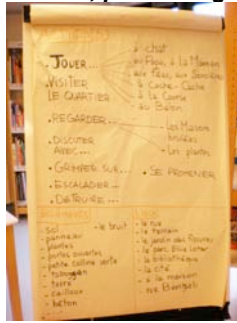 • JOUER...
à chat
au Papa, à la Maman
à Cache-Cache
à la Course
au Ballon
VISITER
LE QUARTIER
• REGARDER
- Les Maisons
brûlées
- Les plantes
• DISCUTER
AVEC...
• GRIMPER SUR...
• SE PROMENER
• ESCALADER...
DÉTRUIRE...
- sol
- le bruit
- panneau
- plantes
- portes ouvertes
- petite colline verte
- toboggan
- terre
- cailloux
- béton
- la rue
- le terrain
- le jardin des fleures
- le parc
- la bibliothèque
- la cité
- la maison